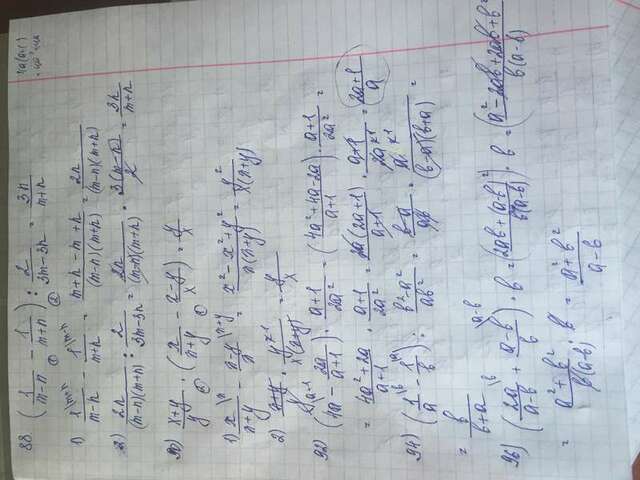 88. (1/(m-n) - 1/(m+n)) : 2/(3m-3n) = 3n/(m+n)
1) 1\m+n/(m-n) - 1\m-n/(m+n) = (m+n-m+n)/((m-n)(m+n)) = 2n/((m-n)(m+n))
2) 2n/((m-n)(m+n)) : 2/(3m-3n) = 2n/((m-n)(m+n)) · 3(m-n)/2 = 3n/(m+n)
90) (x+y)/y · (x/(x+y) - (x-y)/x) = y/x
1) x\x/(x+y) - (x-y)\x+y/x = (x²-x²+y²)/(x(x+y)) = y²/(x(x+y))
2) (x+y)/y · y²/(x(x+y)) = y/x
92) (4a\a+1 - 2a/(a+1)) · (a+1)/2a² = ((4a²+4a-2a)/(a+1)) · (a+1)/2a² =
= (4a²+2a)/(a+1) · (a+1)/2a² = 2a(2a+1)/(a+1) · (a+1)/2a² = (2a+1)/a
94) (1\b/a - 1\a/b) : (b²-a²)/ab² = (b-a)/ab · ab²/((b-a)(b+a)) =
= b/(b+a)
96) (2a\b/(a-b) + (a-b)\a-b/b) · b = ((2ab+(a-b)²)/(b(a-b))) · b = ((a²-2ab+2ab+b²)/(b(a-b)))
= (a²+b²)/(b(a-b)) · b = (a²+b²)/(a-b)